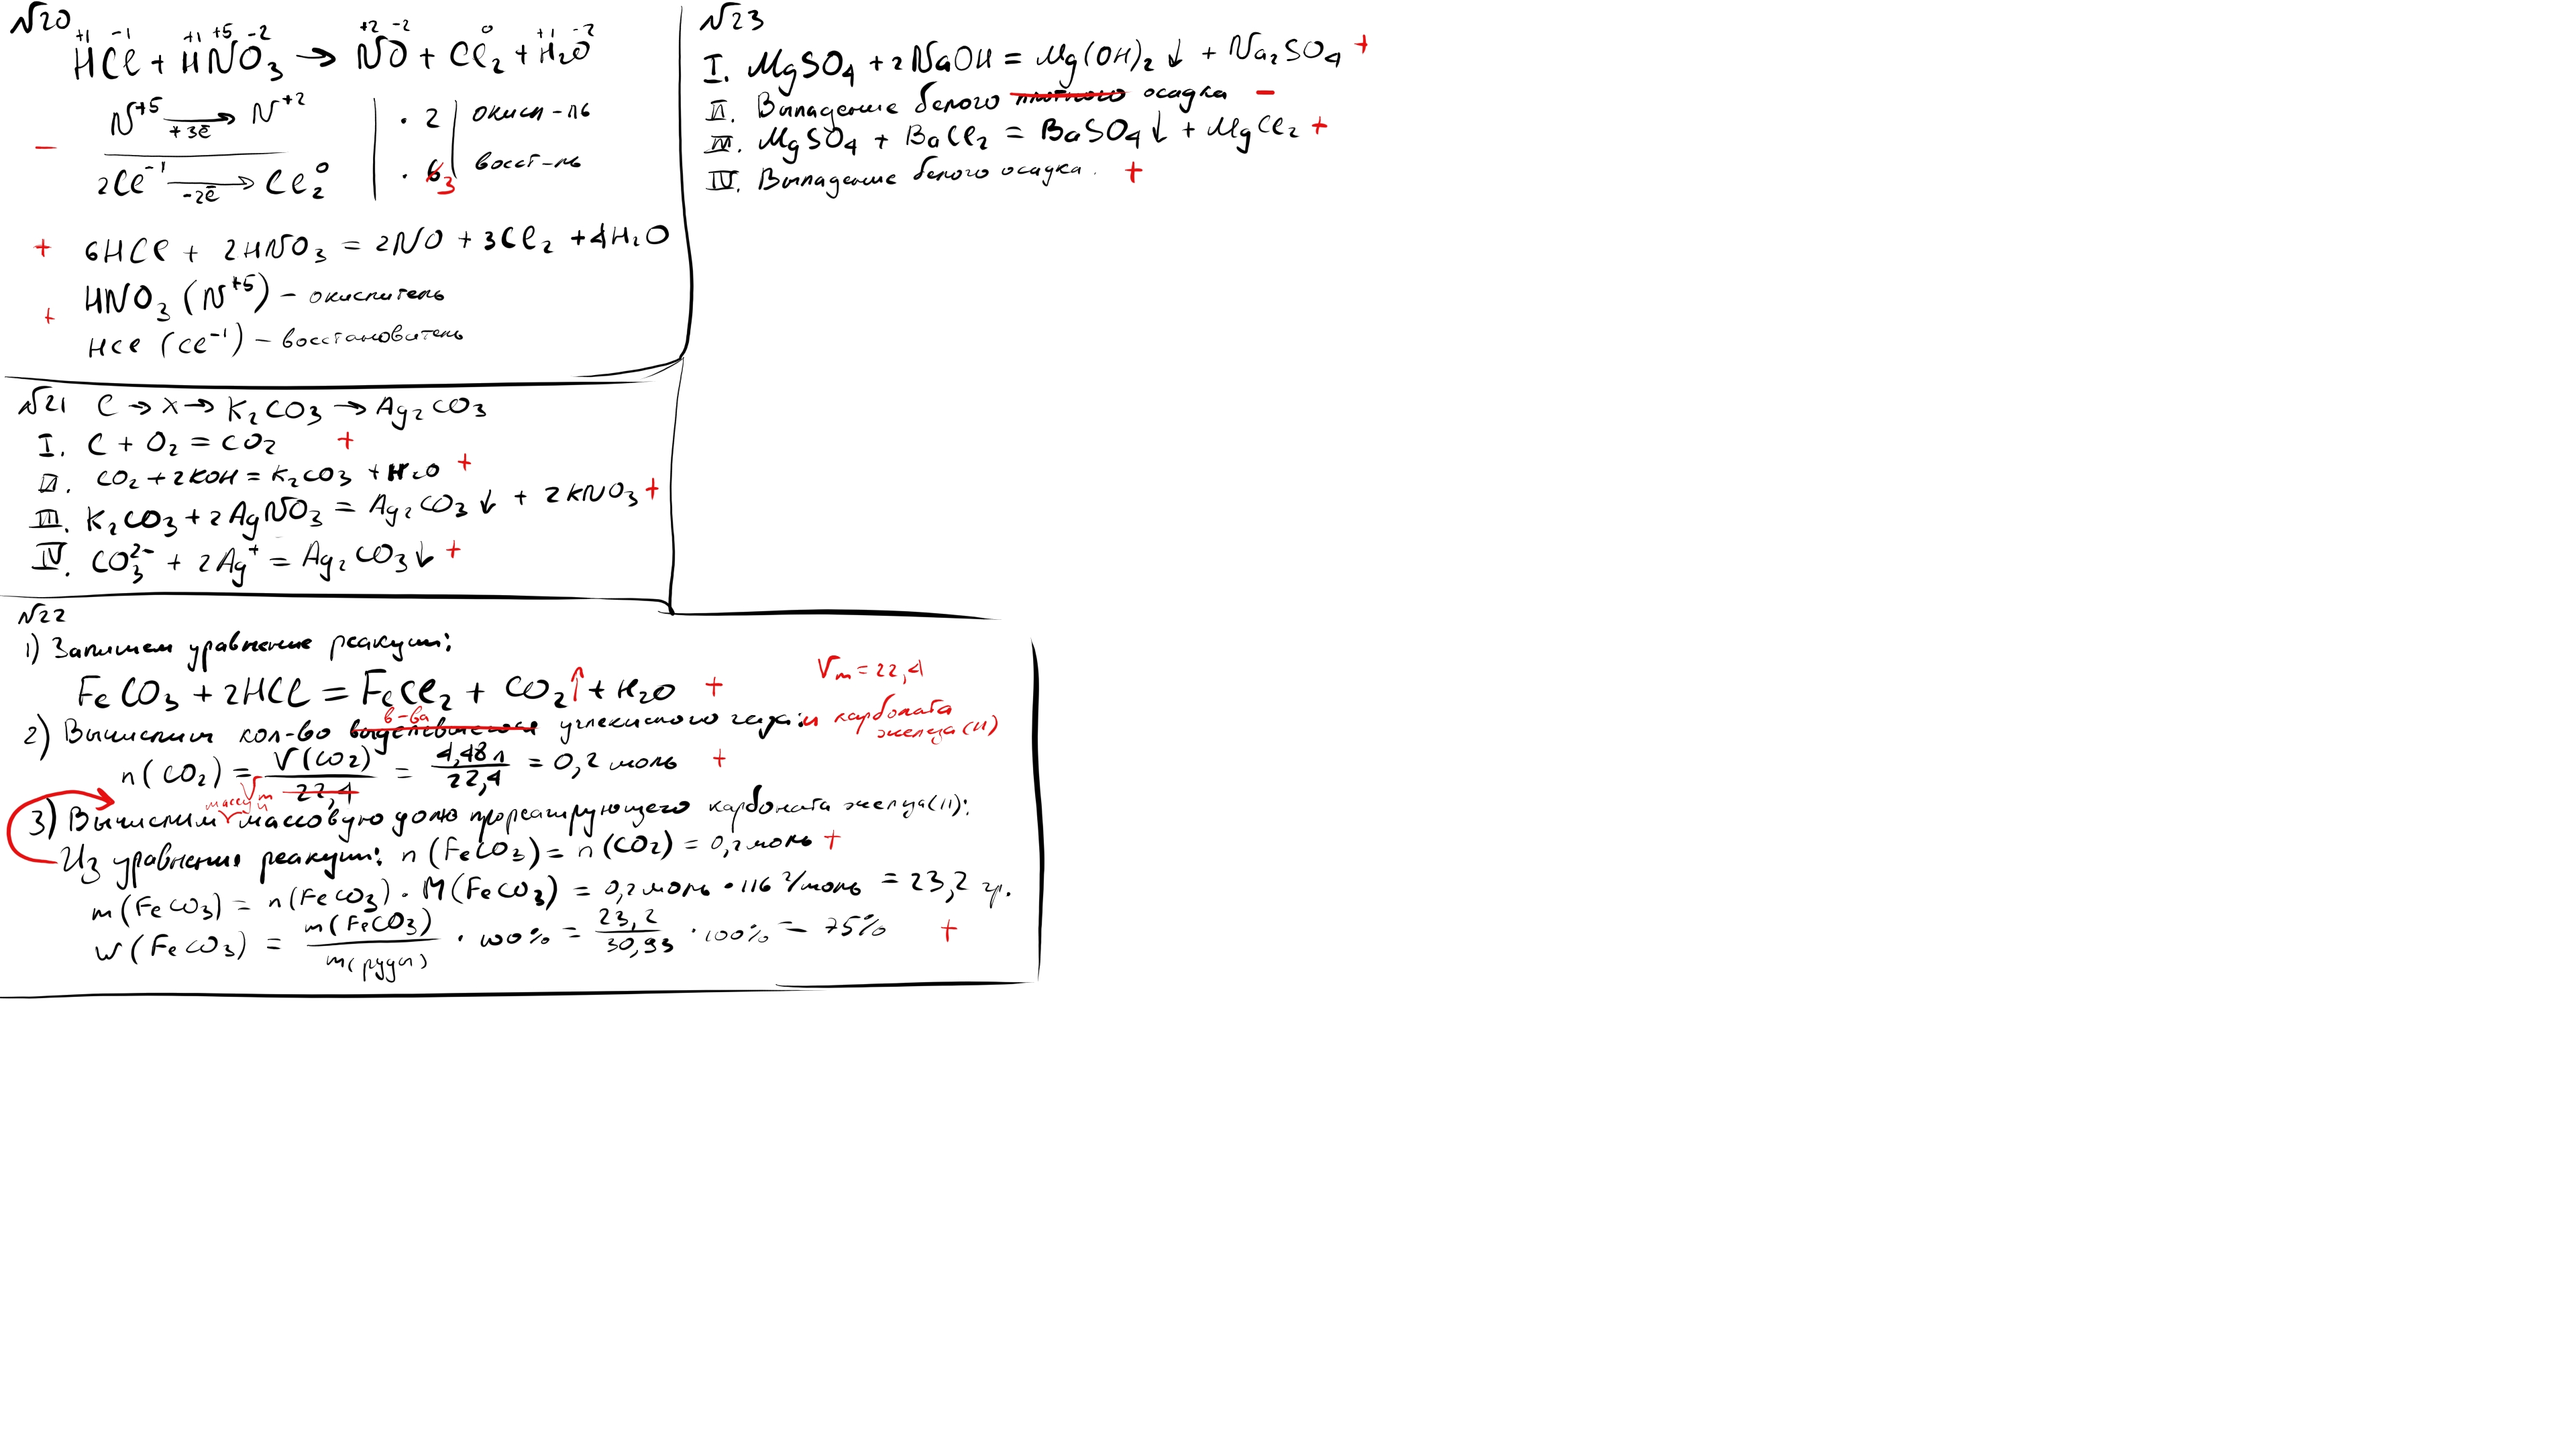 №20
+1 -1 +1 +5 -2 +2 -2 0 +1 -2
HCl + HNO₃ → NO + Cl₂ + H₂O
N⁺⁵ → N⁺² | · 2 | окисл-ль
+3ē
−
2Cl⁻¹ → Cl₂⁰ | · 6 3 | восст-ль
-2ē
+ 6HCl + 2HNO₃ = 2NO + 3Cl₂ + 4H₂O
HNO₃ (N⁺⁵) – окислитель
+
HCl (Cl⁻¹) – восстановитель
№21 C → X → K₂CO₃ → Ag₂CO₃
I. C + O₂ = CO₂ +
II. CO₂ + 2KOH = K₂CO₃ + H₂O +
III. K₂CO₃ + 2AgNO₃ = Ag₂CO₃↓ + 2KNO₃ +
IV. CO₃²⁻ + 2Ag⁺ = Ag₂CO₃↓ +
№22
1) Запишем уравнение реакции:
Vm = 22,4
FeCO₃ + 2HCl = FeCl₂ + CO₂↑ + H₂O +
2) Вычислим кол-во выделившегося в-ва углекислого газа: и карбоната железа(II)
n(CO₂) = V(CO₂) / 22,4 Vm = 4,48л / 22,4 = 0,2 моль +
3) Вычислим массу и массовую долю прореагирующего карбоната железа(II):
Из уравнения реакции: n(FeCO₃) = n(CO₂) = 0,2 моль +
m(FeCO₃) = n(FeCO₃) · M(FeCO₃) = 0,2 моль · 116 г/моль = 23,2 гр.
w(FeCO₃) = m(FeCO₃) / m(руды) · 100% = 23,2 / 30,93 · 100% = 75% +
№23
I. MgSO₄ + 2NaOH = Mg(OH)₂↓ + Na₂SO₄ +
II. Выпадение белого плотного осадка −
III. MgSO₄ + BaCl₂ = BaSO₄↓ + MgCl₂ +
IV. Выпадение белого осадка. +